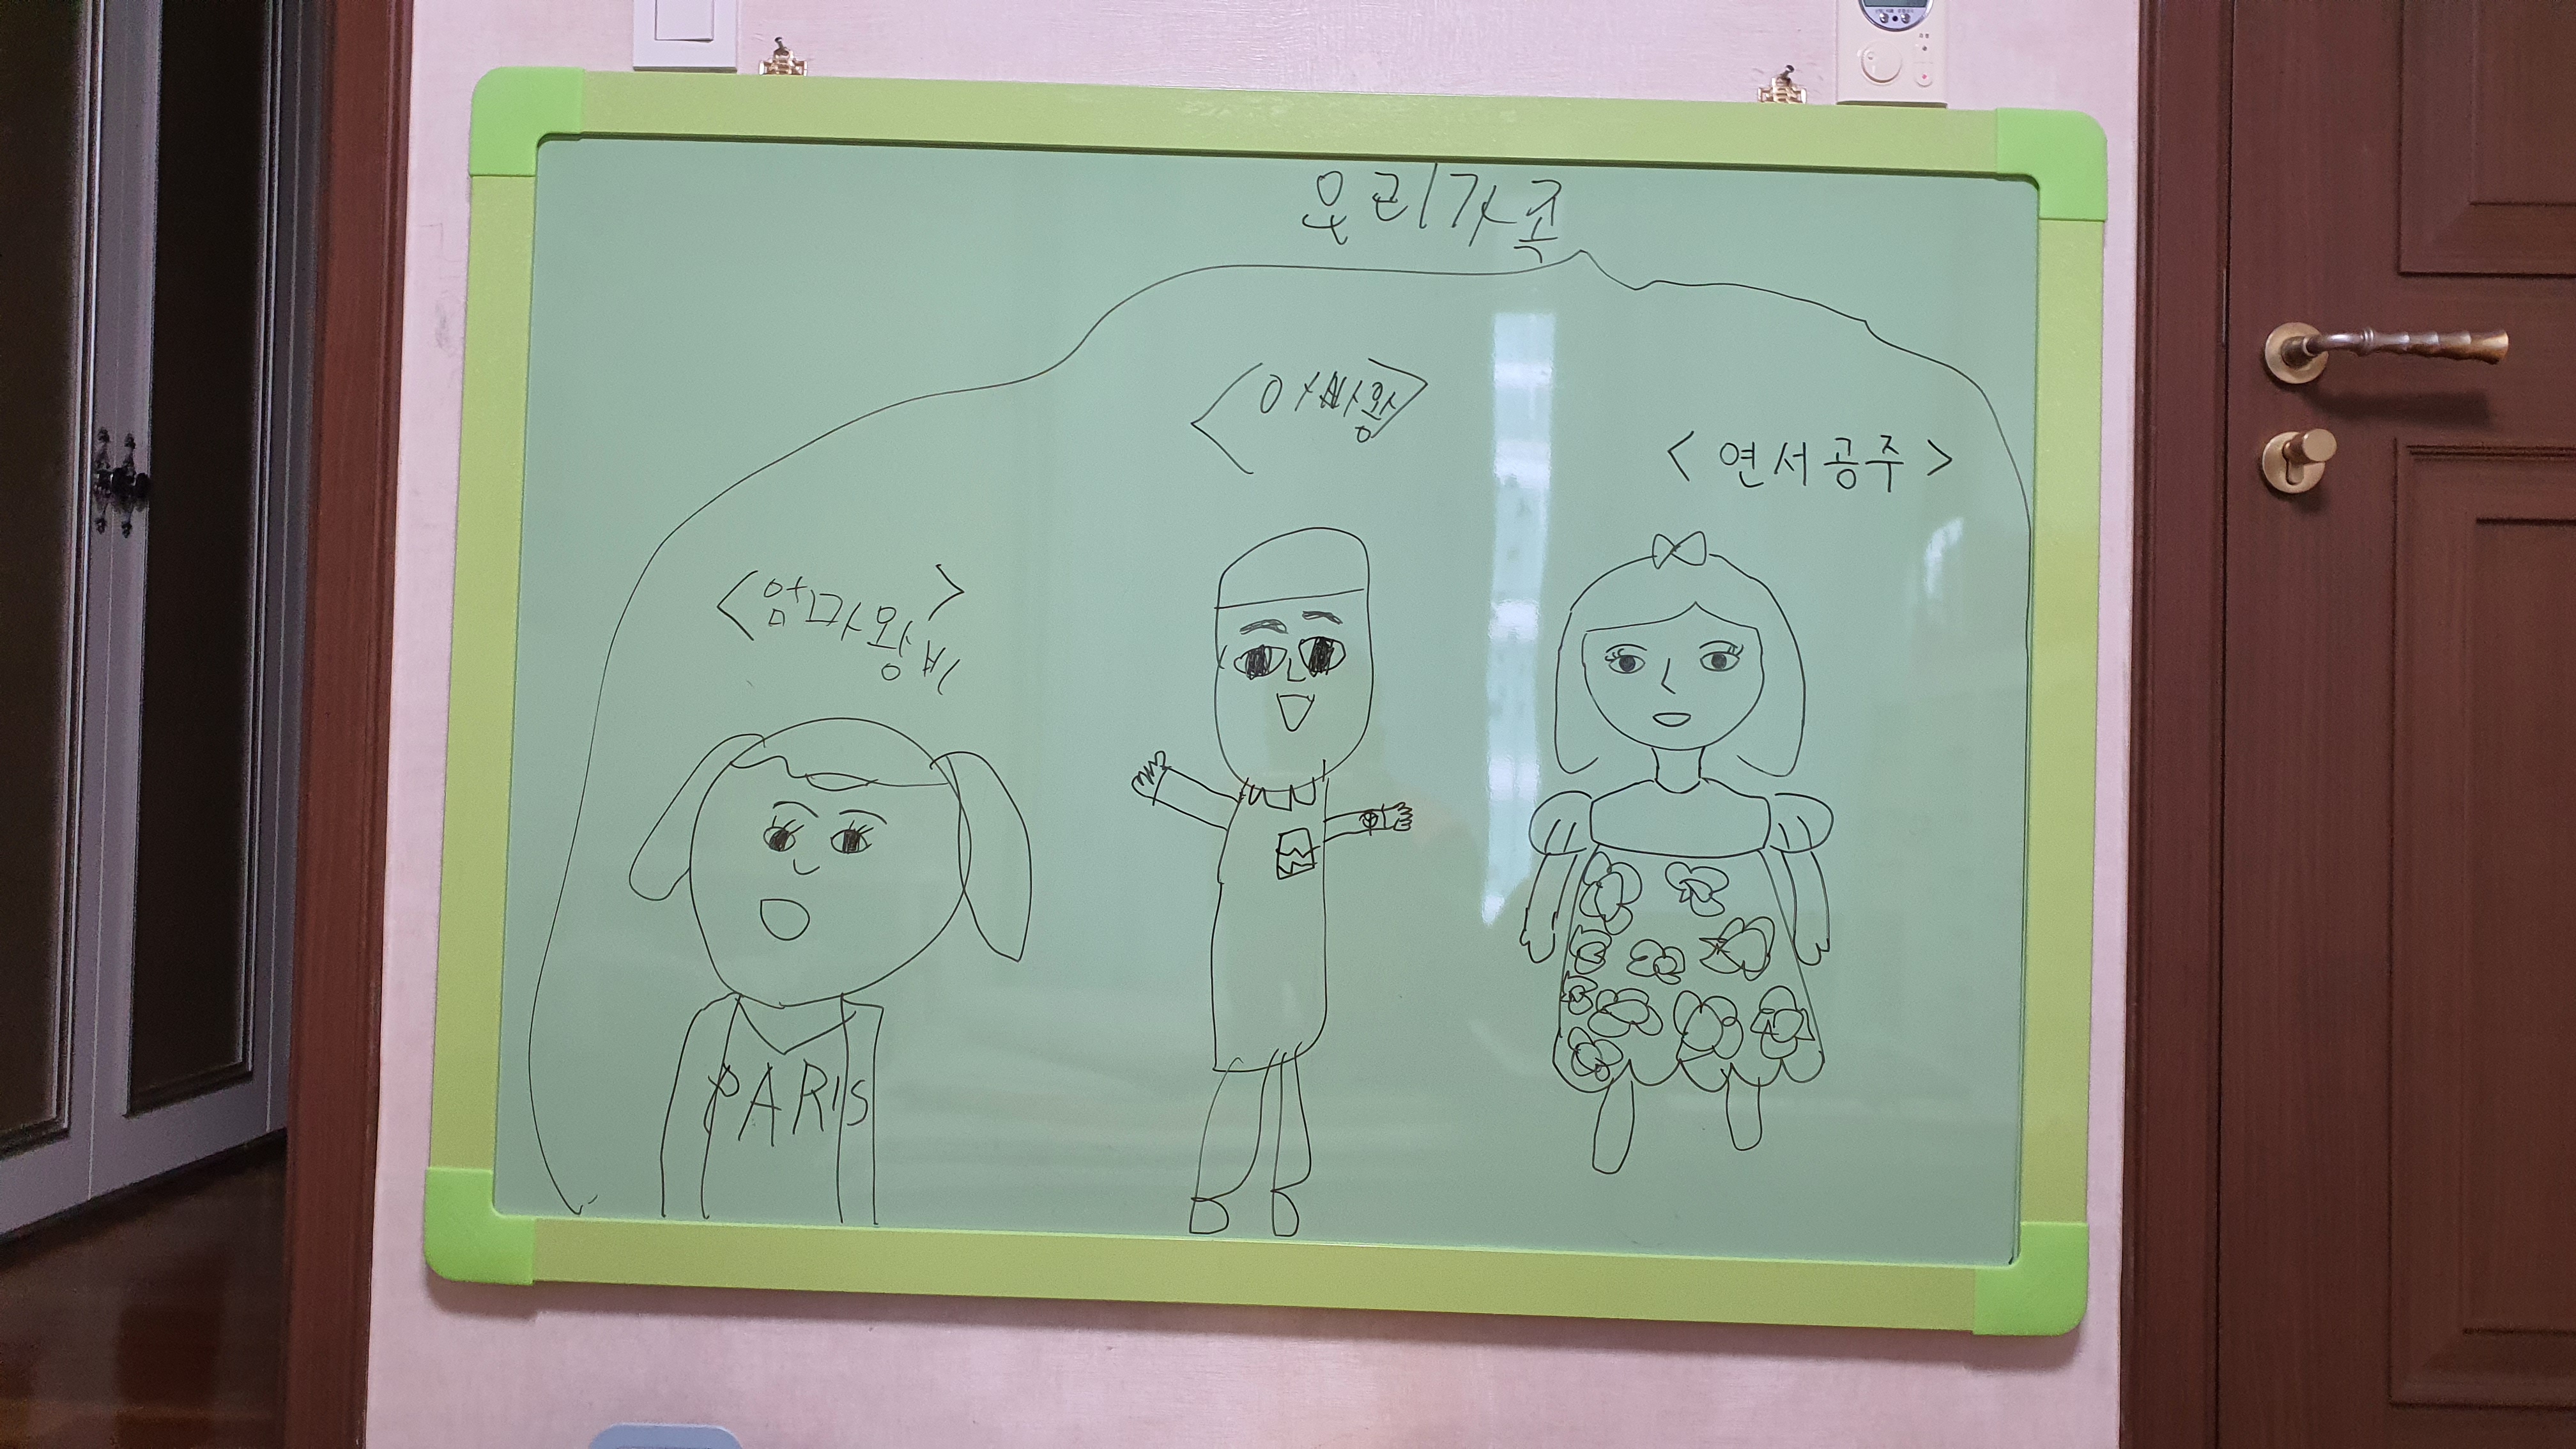 우리가족
<아빠왕>
<연서공주>
<엄마왕비>
PARIS